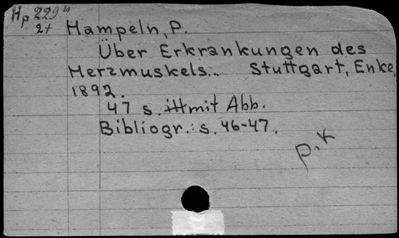 Hp 229 4
2t
Hampeln, P.
Über Erkrankungen des
Herzmuskels.. Stuttgart, Enke,
1892.
47 s. mit Abb.
Bibliogr.: s. 46-47.
p. k